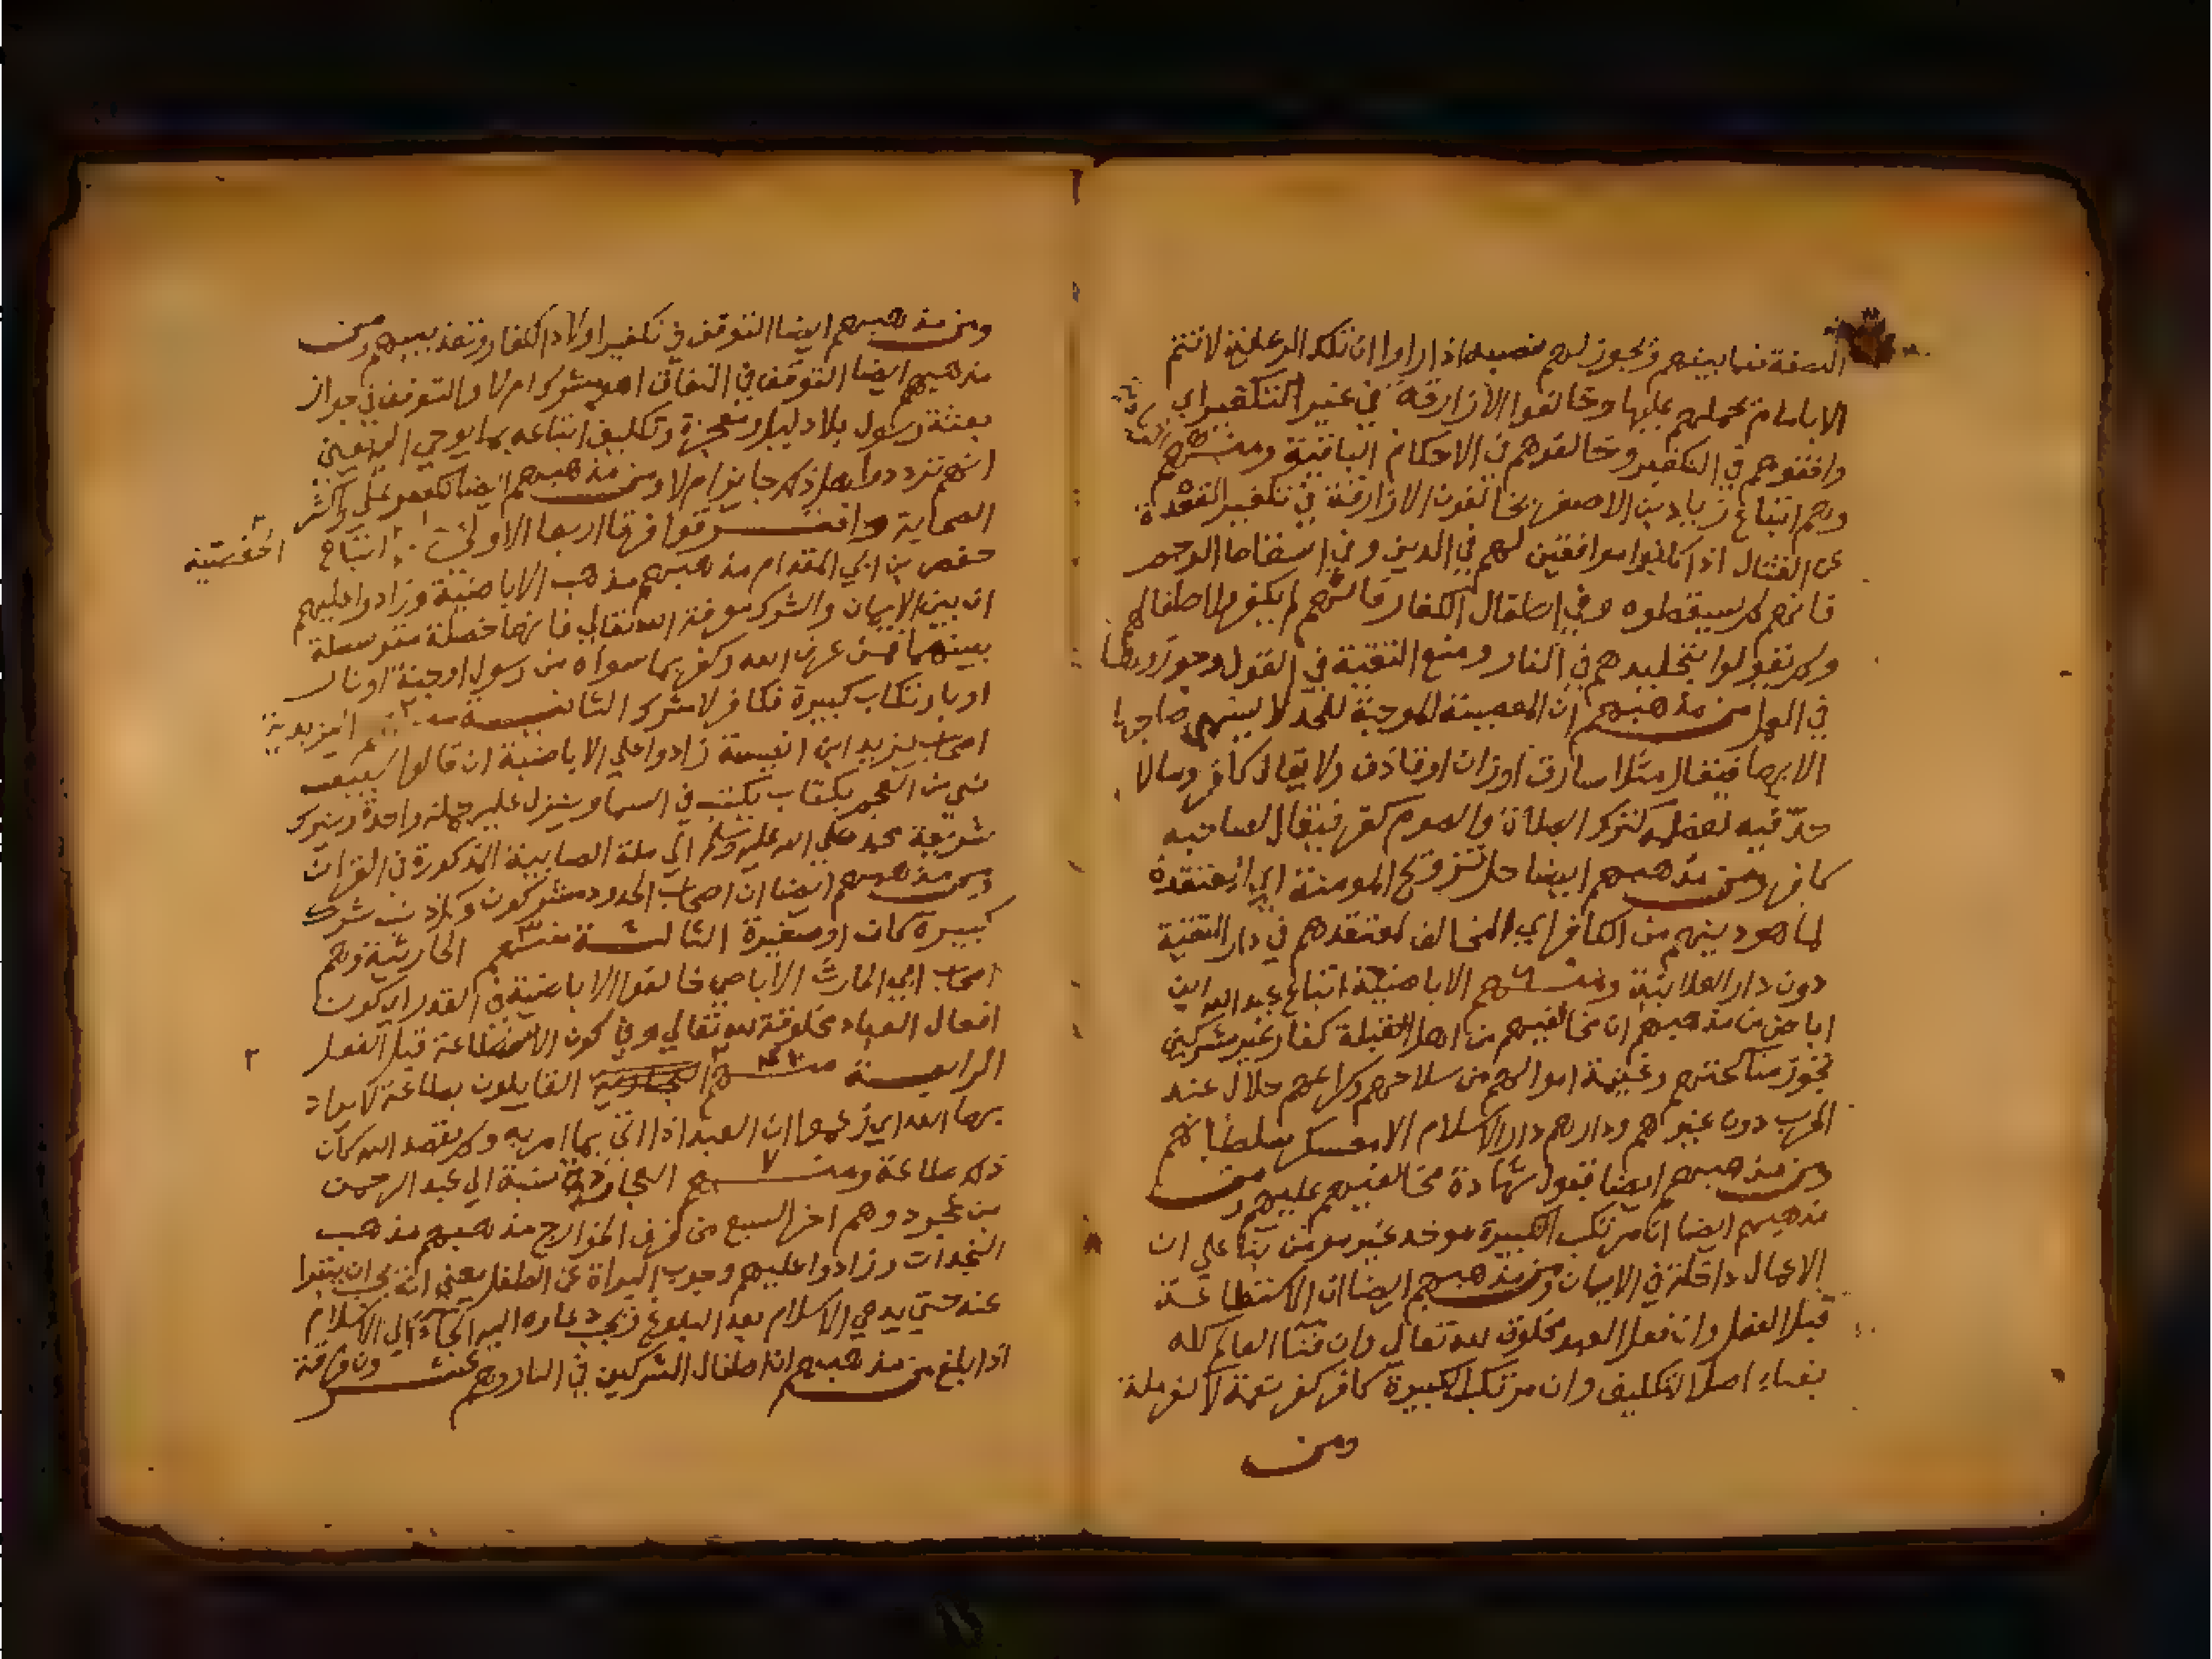 النصفة فيما بينهم ويجوز لهم نصبه اذا راوا ان تلك الرعاية لا تتم
الا بامام يحملهم عليها وخالفوا الازارقة في غير التكفير اي
وافقوهم في التكفير وخالفوهم في الاحكام الباقية ومنهم
وهم اتباع زياد بن الاصفر يخالفون الازارقة في تكفير القعدة
عن القتال اذا كانوا موافقين لهم في الدين وفي اسقاط الرجم
فانهم لم يسقطوه وفي اطفال الكفار فانهم لم يكفروا اطفالهم
ولم يقولوا بتخليدهم في النار ومنع التقية في القول وجوزوها
في العمل ومن مذهبهم ان المعصية الموجبة للحد لا يسمى صاحبها
الا بها فيقال مثلا سارق او زان او قاذف ولا يقال كافر وما لا
حد فيه لعظمه كترك الصلاة والصوم كفر فيقال لصاحبه
كافر ومن مذهبهم ايضا حل تزويج المومنة اي المعتقدة
لما هو دينهم من الكافر اي المخالف لمعتقدهم في دار التقية
دون دار العلانية ومنهم الاباضية اتباع عبد الله ابن
اباض من مذهبهم ان مخالفيهم من اهل القبلة كفار غير مشركين
تجوز مناكحتهم وغنيمة اموالهم من سلاحهم وكراعهم حلال عند
الحرب دون غيرهم ودارهم دار الاسلام الا معسكر سلطانهم
ومن مذهبهم ايضا قبول شهادة مخالفيهم عليهم ومن
مذهبهم ايضا ان مرتكب الكبيرة موحد غير مومن بنا على ان
الاعمال داخلة في الايمان ومن مذهبهم ايضا ان الاستطاعة
قبل الفعل وان فعل العبد مخلوق لله تعالى وان فنا العالم كله
بفناء اصل التكليف وان مرتكب الكبيرة كافر كفر نعمة لا كفر ملة
ومن
ومن مذهبهم ايضا التوقف في تكفير اولاد الكفار وتعذيبهم ومن
مذهبهم ايضا التوقف في النفاق اهو شرك ام لا والتوقف في جواز
بعثة رسول بلا دليل ومعجزة وتكليف اتباعه بما يوحي اليه يعني
انهم ترددوا هل ذلك جايز ام لا ومن مذهبهم ايضا كفر علي واكثر
الصحابة وافترقوا فرقا اربعا الاولى اتباع
الحفصية
حفص بن ابي المقدام مذهبهم مذهب الاباضية وزادوا عليهم
ان بين الايمان والشرك معرفة الله تعالى فانها خصلة متوسطة
بينهما فمن عرف الله وكفر بما سواه من رسول او جنة او نار
او بارتكاب كبيرة فكافر لا مشرك الثانية
اليزيدية
اصحاب يزيد ابن انيسة زادوا على الاباضية ان قالوا سيبعث
نبي من العجم بكتاب يكتب في السما وينزل عليه جملة واحدة ويترك
شريعة محمد صلى الله عليه وسلم الى ملة الصابية المذكورة في القران
ومن مذهبهم ايضا ان اصحاب الحدود مشركون وكل ذنب شرك
كبيرة كانت او صغيرة الثالثة منهم الحارثية وهم
اصحاب ابي الحارث الاباضي خالفوا الاباضية في القدر اي كون
افعال العباد مخلوقة لله تعالى وفي كون الاستطاعة قبل الفعل
٢
الرابعة منهم القايلون بطاعة لا يراد
بها الله اي زعموا ان العبد اذا اتى بما امر به ولم يقصد الله كان
ذلك طاعة ومنهم ٧ العجاردة نسبة الى عبد الرحمن
بن عجرد وهم اخر السبع من فرق الخوارج مذهبهم مذهب
النجدات وزادوا عليهم وجوب البراة عن الطفل يعني انه يجب ان يتبرا
عنه حتى يدعي الاسلام بعد البلوغ ويجب دعاوه اليه اي الى الاسلام
اذا بلغ من مذهبهم ان اطفال المشركين في النار وهم عشر